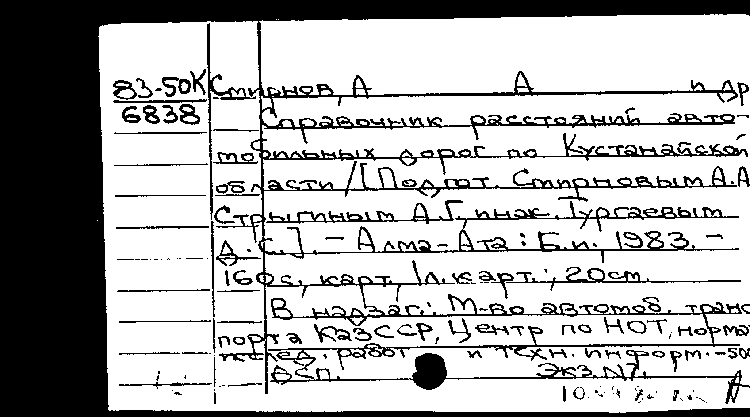 83-50К Смирнов, А А и др
6838 Справочник расстояний авто-
мобильных дорог по Кустанайской
области / [Подгот. Смирновым А.А
Стрыгиным А.Г, инж. Тургаевым
Д.С.]. - Алма-Ата : Б.и., 1983. -
160 с., карт, 1л. карт. ; 20 см.
В надзаг.: М-во автомоб. транс
порта КазССР, Центр по НОТ, норма
исслед. работ и техн. информ. - 500
Бсп. Экз. N7.